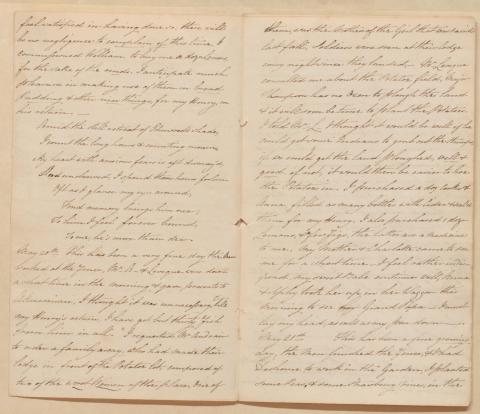 feel satisfied in having done so, there will
be no negligence to complain of this time, I
commissioned William to buy me a
for the sake of the seeds. I anticipate much
pleasure in making use of them in bread
pudding & other nice things, for my Honey, on
his return —
Amid the still retreat of Elmwood's shade,
I count the long hours & counting
My heart with anxious fears is oft dismay'd.
unchanged, I spend them here forlorn
Oft as I glance my eyes around,
Fond memory brings him near;
To him I feel forever bound,
To me, he's more than dear —
May 20th This has been a very fine day, the Men
worked at the fence, Mr. R. & League was down
a short time in the morning & gave presents to
I thought it was unnecessary, till
my Honey's return, I have got but thirty fish
from him in all." I requested Mr.
to order a family away, who had made their
lodge in front of the Potatoe lot, composed of
two of the worst Women of the place. One of
them, was the Mother of the Girl that was
last fall, Soldiers were seen at their lodge
every night since they landed, — Mr. League
consulted me about the Potatoe field, Major
Thompson has no Oxen to plough the land
& it will soon be time to plant the Potatoes
I told Mr. L. I thought it would be well if he
could get some Indians to grub out the stumps
if we could get the land ploughed, well &
good, if not, it would then be easier to hoe
the Potatoes in. I purchased a doz. &
Anna, filled as many bottles with cider
them for my Honey. I also purchased 1 doz.
Lemons, & Figs, the latter are a medicine
to me. My Mother & Charlotte came to see
me for a short time. I feel rather indis-
posed, my sweet babe continues well, Anna
& Sylvy took her up, in her Waggon this
evening to see Grand Papa — I must
lay my head, as well as my pen down —
May 21st This has been a fine growing
day, the Men finished the fence, & I had
to work in the Garden, I planted
some Peas, & some Strawberry vines, in the